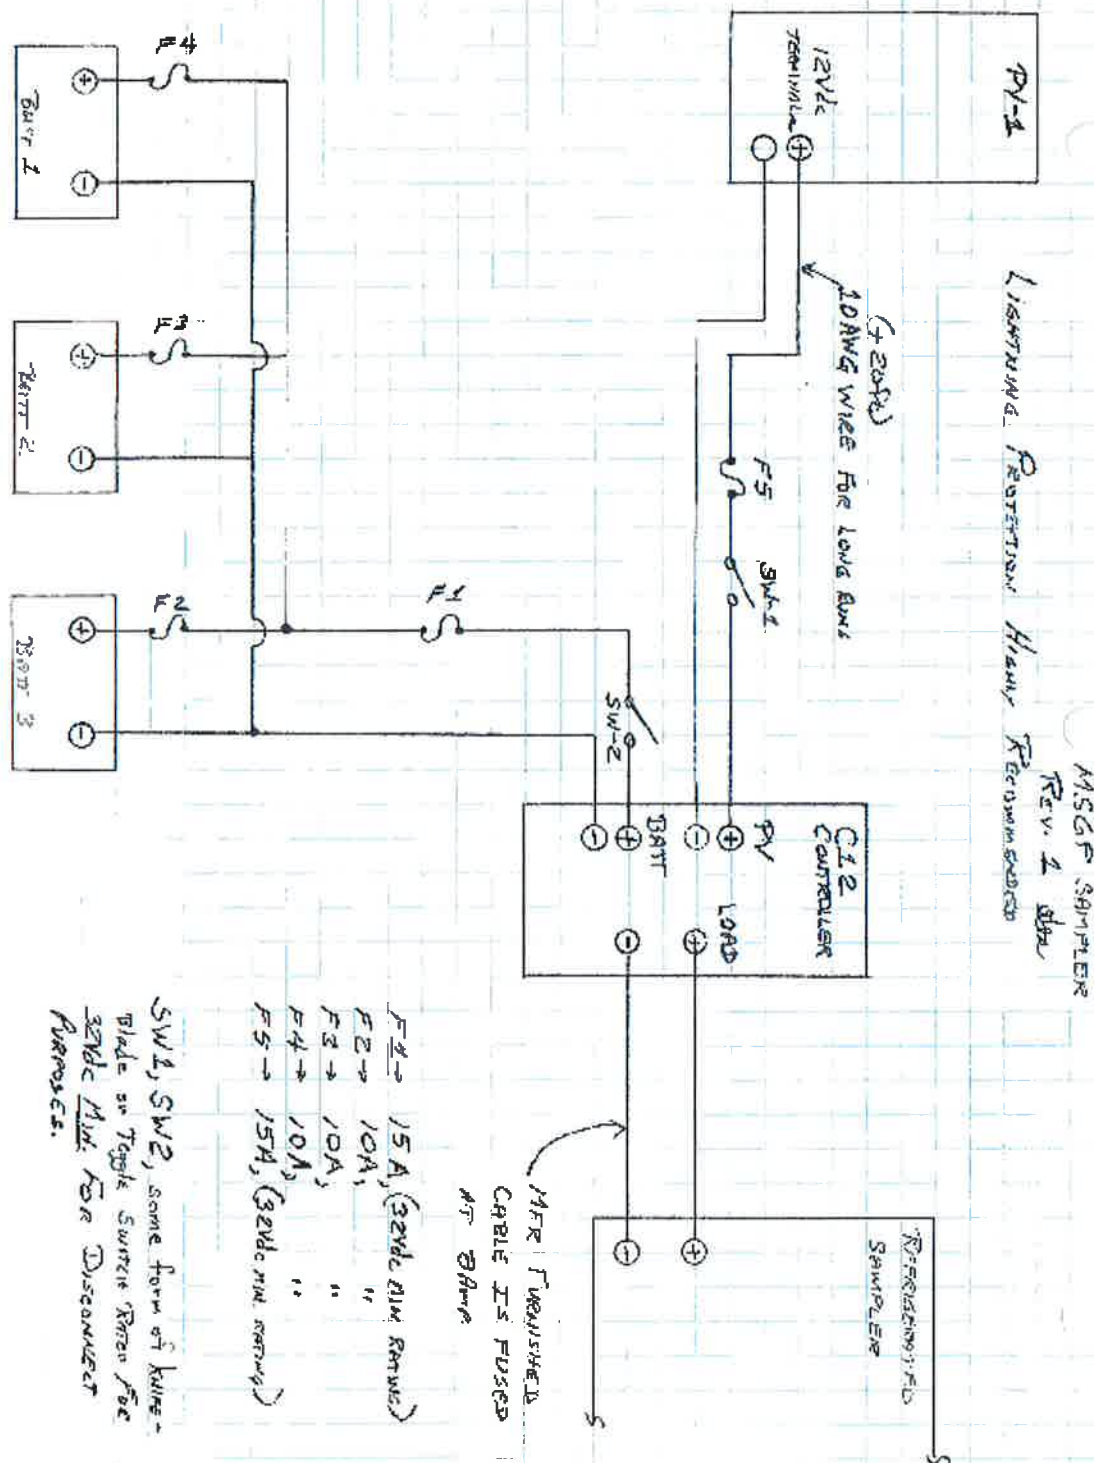 MSGF SAMPLER
REV. 1
LIGHTNING PROTECTION HIGHLY RECOMMENDED
PV-1
12Vdc
TERMINALS
+
(+ 20ft)
10AWG WIRE FOR LONG RUNS
F5
SW-1
C12
CONTROLLER
PV
+
-
LOAD
+
-
BATT
+
-
REFRIGERATED
SAMPLER
+
-
MFR FURNISHED
CABLE IS FUSED
AT 8Amp
SW-2
F1
F4
F3
F2
+
-
BATT 1
+
-
BATT 2
+
-
BATT 3
F1→ 15A, (32Vdc MIN RATING)
F2→ 10A, "
F3→ 10A, "
F4→ 10A, "
F5→ 15A, (32Vdc MIN. RATING)
SW1, SW2, some form of KNIFE-
Blade or Toggle SWITCH RATED FOR
32Vdc MIN. FOR DISCONNECT
PURPOSES.